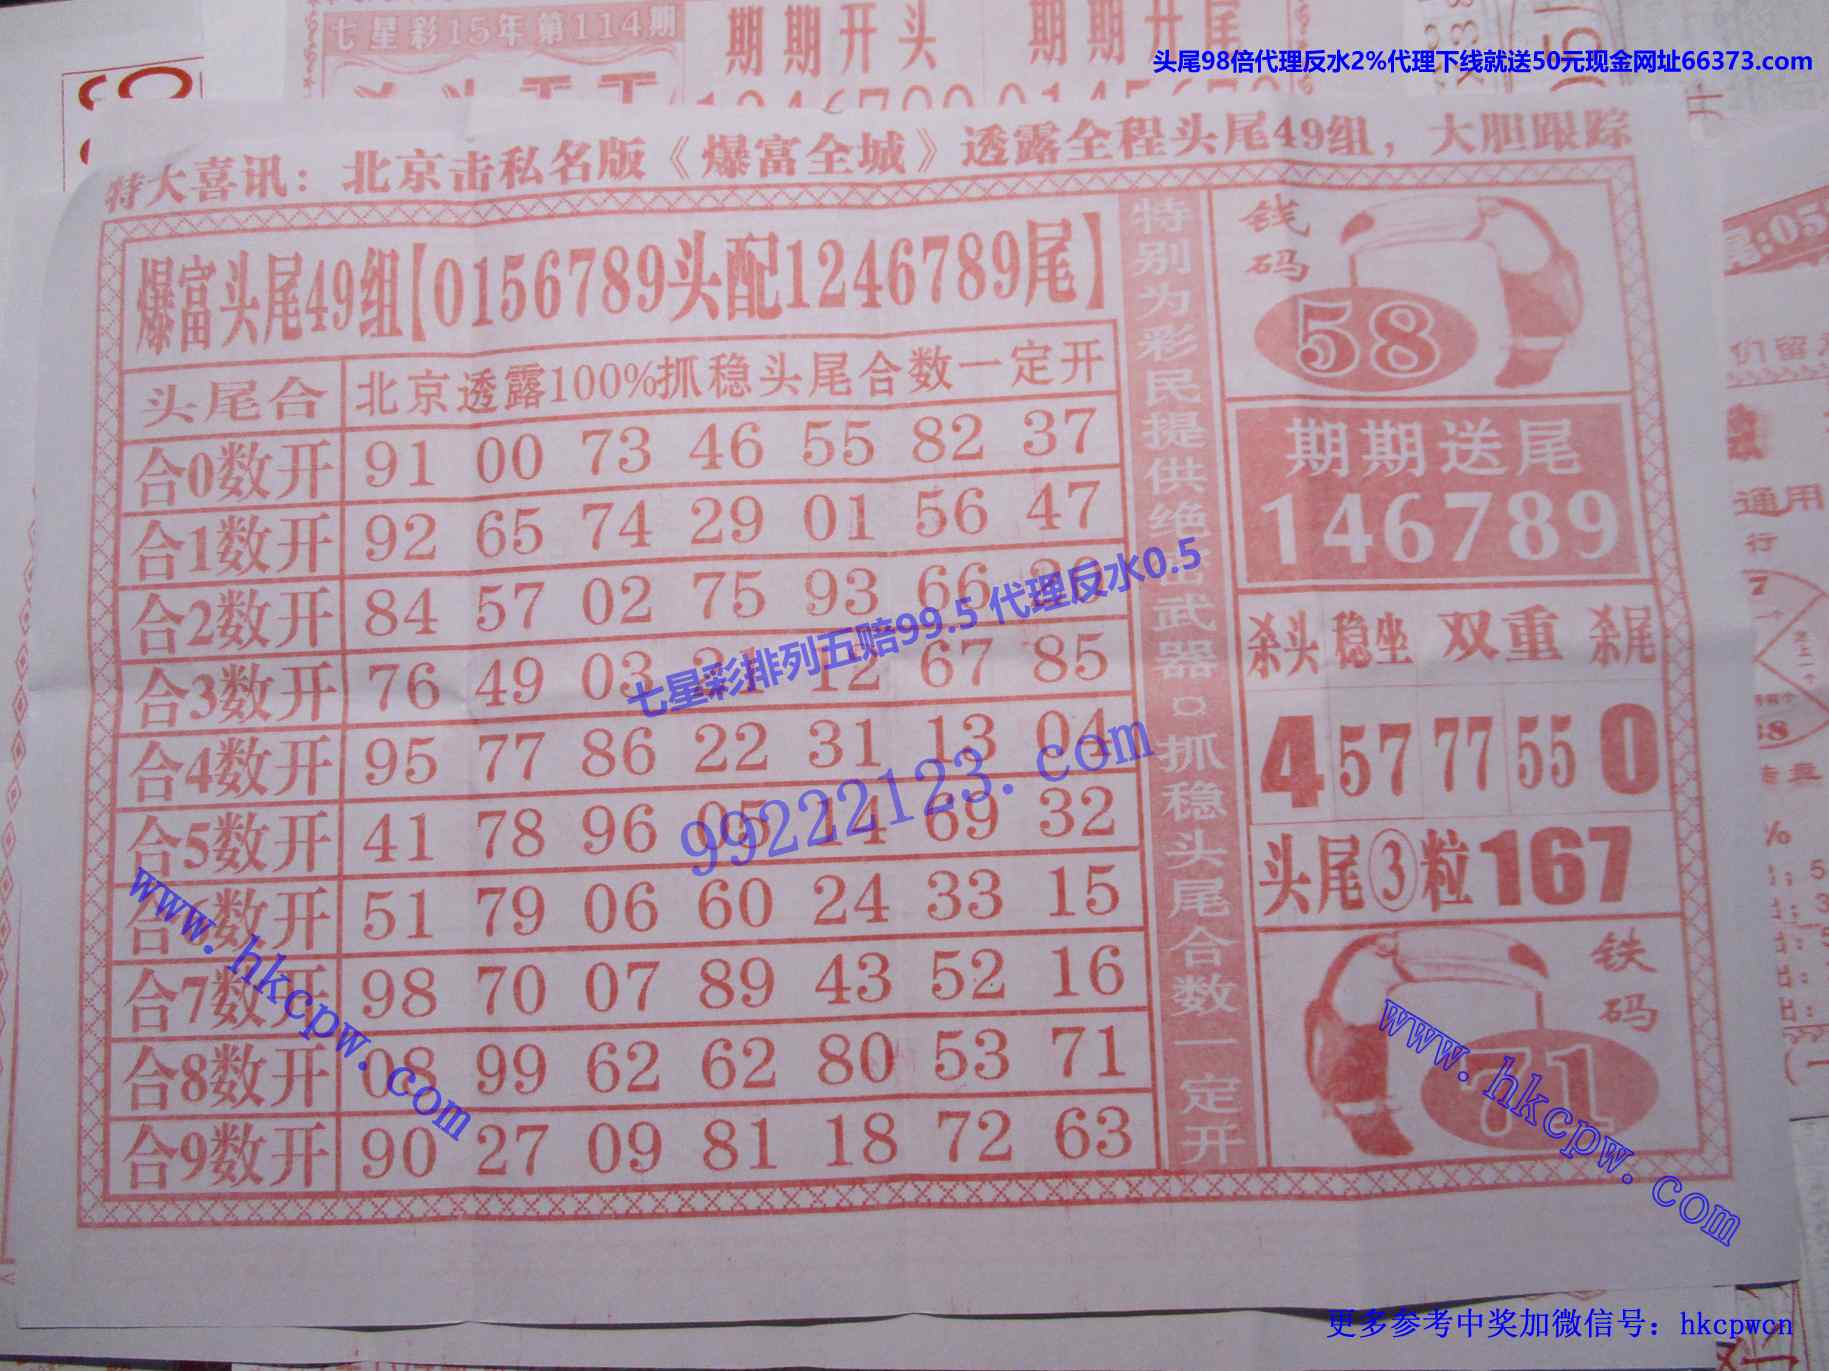 七星彩15年第114期
期期开头
期期开尾
头尾98倍代理反水2%代理下线就送50元现金网址66373.com
特大喜讯：北京击私名版《爆富全城》透露全程头尾49组，大胆跟踪
爆富头尾49组【0156789头配1246789尾】
头尾合 北京透露100%抓稳头尾合数一定开
合0数开 91 00 73 46 55 82 37
合1数开 92 65 74 29 01 56 47
合2数开 84 57 02 75 93 66
合3数开 76 49 03 12 67 85
合4数开 95 77 86 22 31 13 04
合5数开 41 78 96 05 14 69 32
合6数开 51 79 06 60 24 33 15
合7数开 98 70 07 89 43 52 16
合8数开 08 99 62 62 80 53 71
合9数开 90 27 09 81 18 72 63
特别为彩民提供绝武器。抓稳头尾合数一定开
钱码
58
期期送尾
146789
杀头 稳坐 双重 杀尾
4 57 77 55 0
头尾③粒167
铁码
71
七星彩排列五赔99.5 代理反水0.5
99222123.com
www.hkcpw.com
www.hkcpw.com
更多参考中奖加微信号：hkcpwcn
尾:05
通用
行